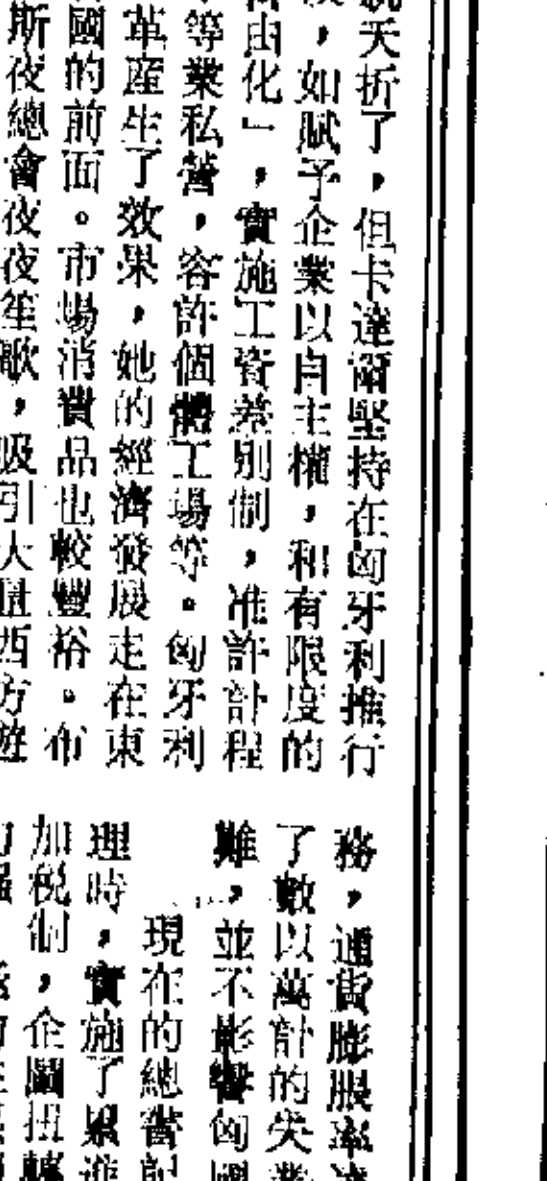 夭折了，但卡達爾堅持在匈牙利推行
，如賦予企業以自主權，和有限度的
由化」，實施工資差別制，准許計程
等業私營，容許個體工場等。匈牙利
革産生了效果，她的經濟發展走在東
國的前面。市場消費品也較豐裕。布
斯夜總會夜夜笙歌，吸引大量西方遊
務，通貨膨脹率
了數以萬計的失業
難，並不影響匈國
現在的總書記
理時，實施了累進
加税制，企圖扭轉